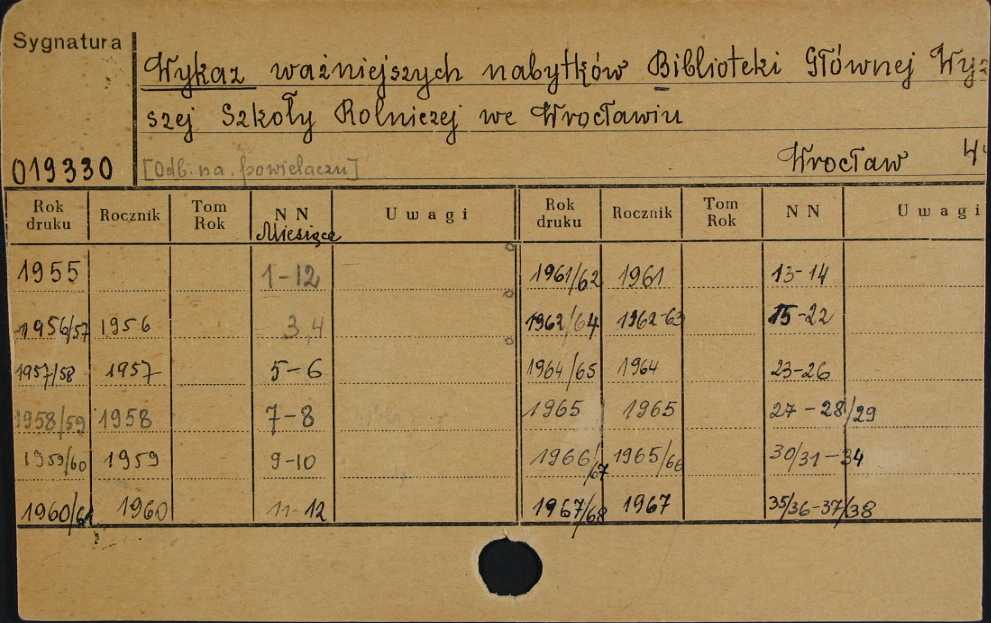 Sygnatura
Wykaz ważniejszych nabytków Biblioteki Głównej Wyż
szej Szkoły Rolniczej we Wrocławiu
019330 [Odb. na. powielaczu] Wrocław 4°
Rok druku Rocznik Tom Rok NN Miesiące Uwagi Rok druku Rocznik Tom Rok NN Uwagi
1955 1-12 1961/62 1961 13-14
1956/57 1956 3,4 1962/64 1962-63 15-22
1957/58 1957 5-6 1964/65 1964 23-26
1958/59 1958 7-8 1965 1965 27-28/29
1959/60 1959 9-10 1966/67 1965/66 30/31-34
1960/61 1960 11-12 1967/68 1967 35/36-37/38